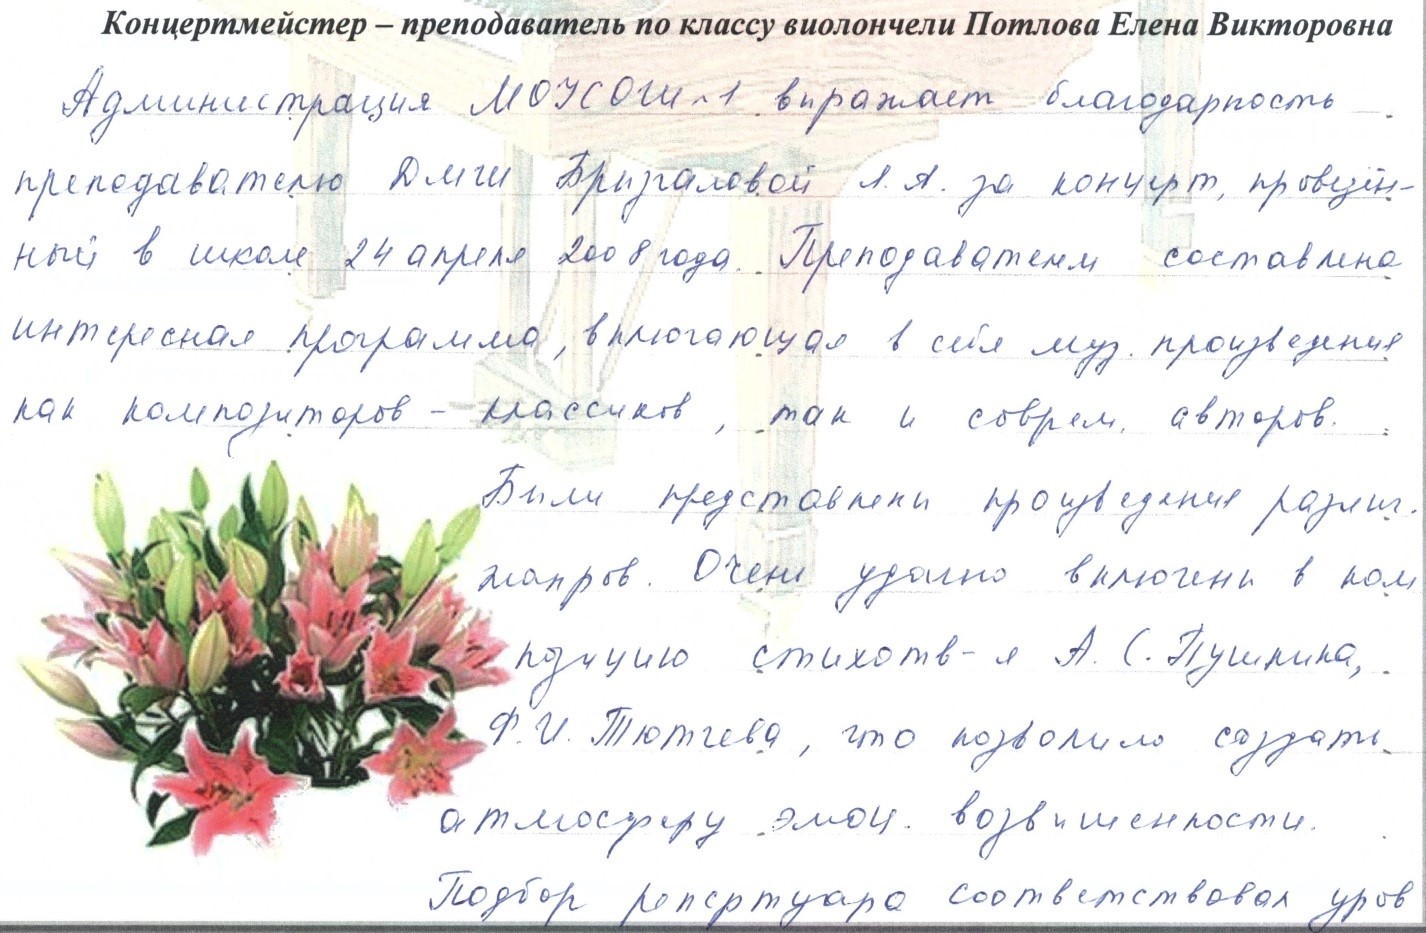 Концертмейстер – преподаватель по классу виолончели Потлова Елена Викторовна
Администрация МОУСОШ №1 выражает благодарность
преподавателю ДМШ Брызгаловой Л.А. за концерт, проведён-
ный в школе 24 апреля 2008 года. Преподавателем составлена
интересная программа, включающая в себя муз. произведения
как композиторов – классиков, так и соврем. авторов.
Были представлены произведения различ.
жанров. Очень удачно включены в ком
позицию стихотв-я А.С. Пушкина,
Ф.И. Тютчева, что позволило создать
атмосферу эмоц. возвышенности.
Подбор репертуара соответствовал уров